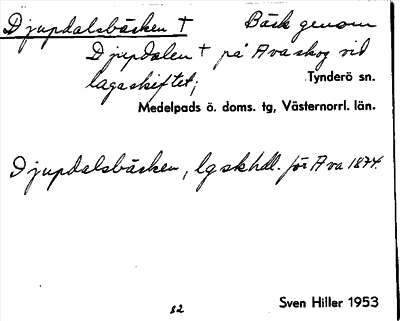 Djupdalsbäcken † Bäck genom
Djupdalen † på Ava skog vid
laga skiftet; Tynderö sn.
Medelpads ö. doms. tg, Västernorrl. län.
Djupdalsbäcken, lgskhdl. för Ava 1874.
82
Sven Hiller 1953